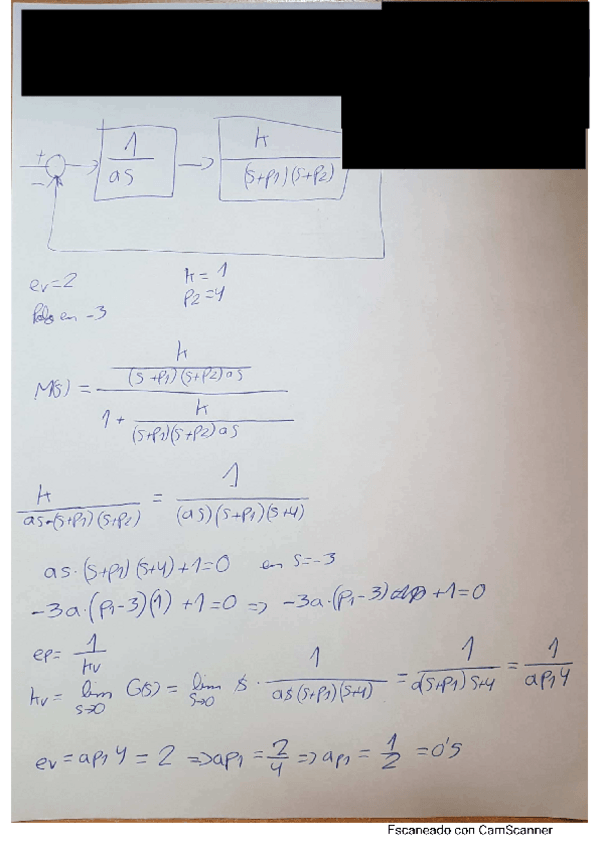 +
-
1/as
k/((s+p1)(s+p2))
ev=2 k=1
Polo en -3 p2=4
M(s) = (k/((s+p1)(s+p2)as))/(1 + k/((s+p1)(s+p2)as))
k/(as·(s+p1)(s+p2)) = 1/((as)(s+p1)(s+4))
as·(s+p1)(s+4)+1=0 en s=-3
-3a·(p1-3)(1)+1=0 => -3a·(p1-3)+1=0
ep= 1/kv
kv = lim s→0 G(s) = lim s→0 s· 1/(as(s+p1)(s+4)) = 1/(a(s+p1)s+4) = 1/(ap1 4)
ev = ap1 4 = 2 => ap1 = 2/4 => ap1 = 1/2 = 0's
Escaneado con CamScanner